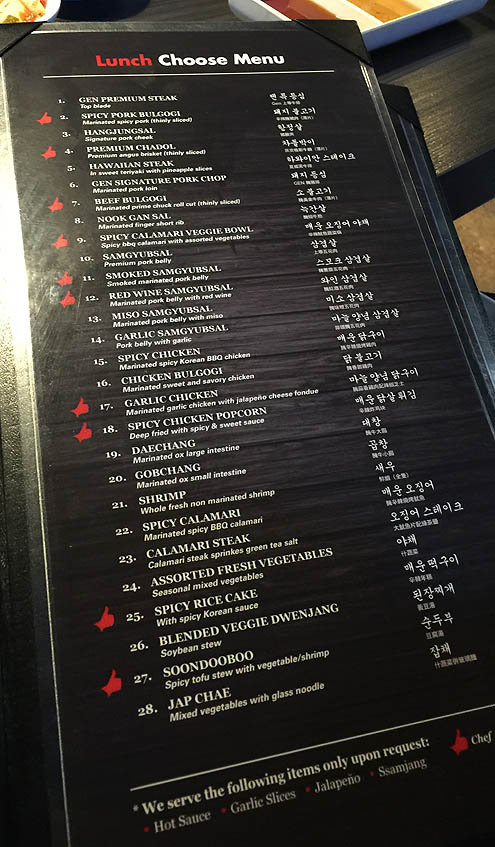 Lunch Choose Menu
1. GEN PREMIUM STEAK
Top blade
2. SPICY PORK BULGOGI
Marinated spicy pork (thinly sliced)
3. HANGJUNGSAL
Signature pork cheek
4. PREMIUM CHADOL
Premium angus brisket (thinly sliced)
5. HAWAIIAN STEAK
In sweet teriyaki with pineapple slices
6. GEN SIGNATURE PORK CHOP
Marinated pork loin
7. BEEF BULGOGI
Marinated prime chuck roll cut (thinly sliced)
8. NOOK GAN SAL
Marinated finger short rib
9. SPICY CALAMARI VEGGIE BOWL
Spicy bbq calamari with assorted vegetables
10. SAMGYUBSAL
Premium pork belly
11. SMOKED SAMGYUBSAL
Smoked marinated pork belly
12. RED WINE SAMGYUBSAL
Marinated pork belly with red wine
13. MISO SAMGYUBSAL
Marinated pork belly with miso
14. GARLIC SAMGYUBSAL
Pork belly with garlic
15. SPICY CHICKEN
Marinated spicy Korean BBQ chicken
16. CHICKEN BULGOGI
Marinated sweet and savory chicken
17. GARLIC CHICKEN
Marinated garlic chicken with jalapeño cheese fondue
18. SPICY CHICKEN POPCORN
Deep fried with spicy & sweet sauce
19. DAECHANG
Marinated ox large intestine
20. GOBCHANG
Marinated ox small intestine
21. SHRIMP
Whole fresh non marinated shrimp
22. SPICY CALAMARI
Marinated spicy BBQ calamari
23. CALAMARI STEAK
Calamari steak sprinkes green tea salt
24. ASSORTED FRESH VEGETABLES
Seasonal mixed vegetables
25. SPICY RICE CAKE
With spicy Korean sauce
26. BLENDED VEGGIE DWENJANG
Soybean stew
27. SOONDOOBOO
Spicy tofu stew with vegetable/shrimp
28. JAP CHAE
Mixed vegetables with glass noodle
돼지 불고기
항정살
차돌박이
하와이안 스테이크
돼지 등심
소 불고기
늑간살
매운 오징어 야채
삼겹살
스모크 삼겹살
와인 삼겹살
미소 삼겹살
마늘 양념 삼겹살
매운 닭구이
닭 불고기
마늘 양념 닭구이
매운 닭살 튀김
대창
곱창
새우
매운 오징어
오징어 스테이크
야채
什蔬菜
매운 떡구이
辛辣年糕
된장찌개
순두부
豆腐湯
잡채
* We serve the following items only upon request:
• Hot Sauce • Garlic Slices • Jalapeño • Ssamjang
Chef